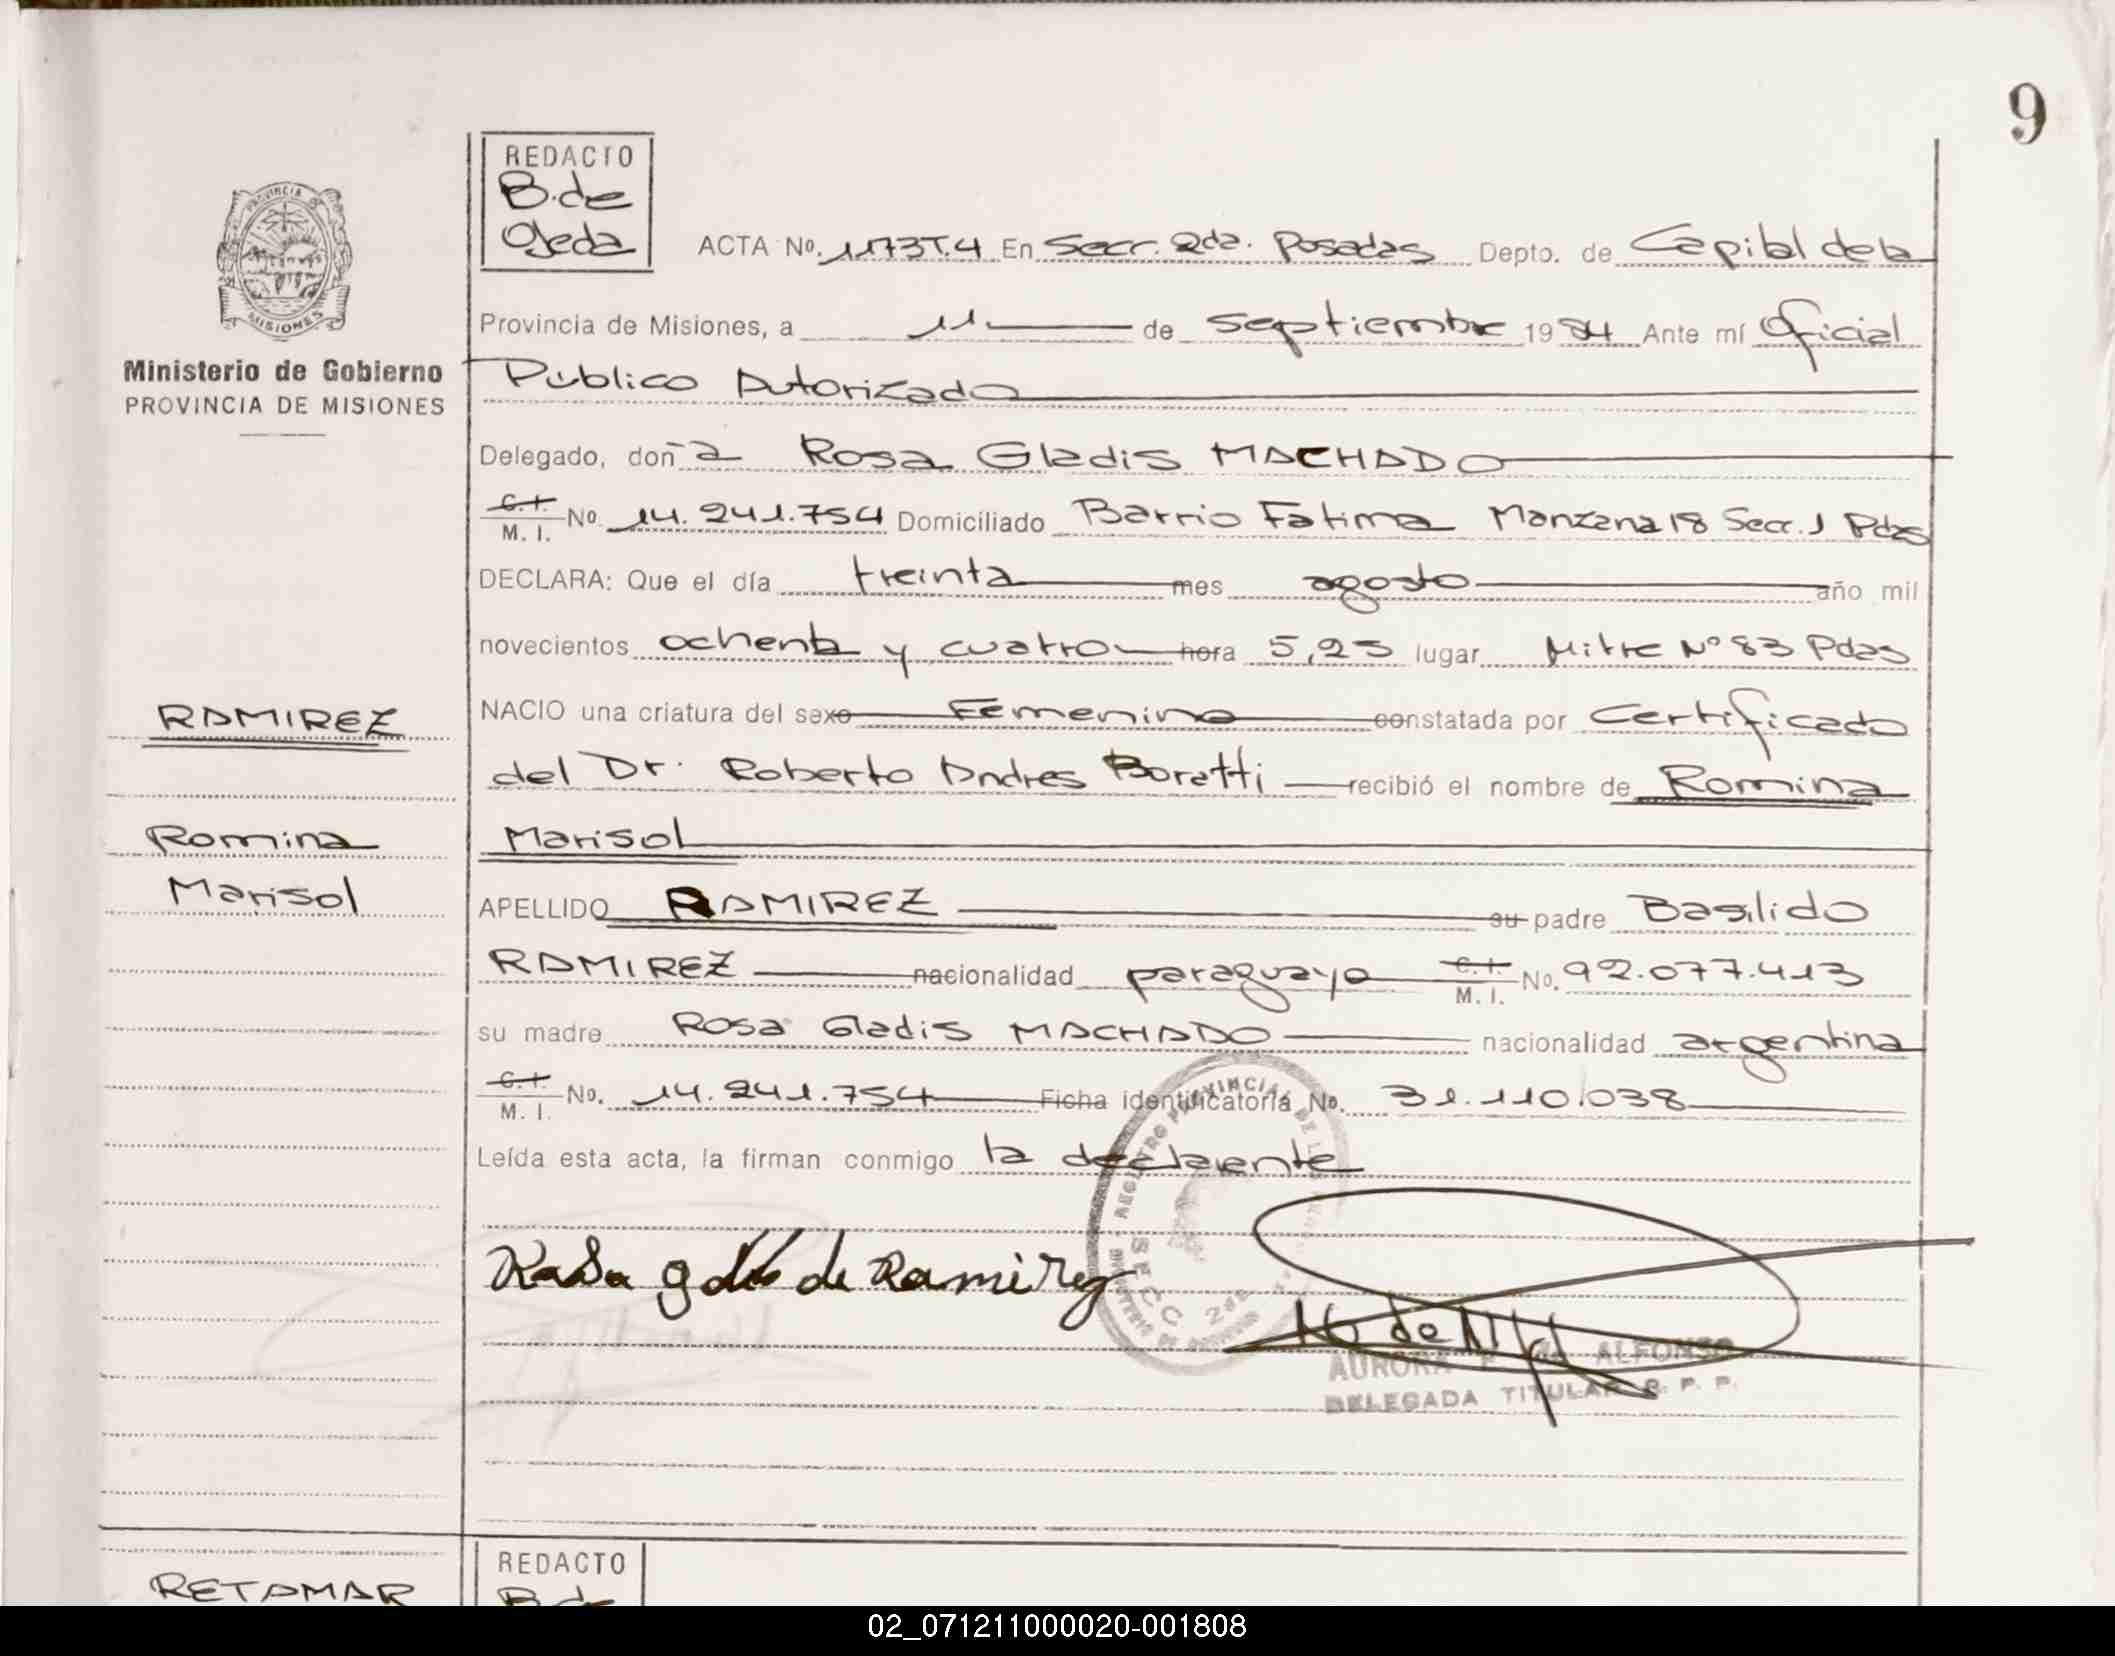 9
REDACTO
B. de
Ojeda
PROVINCIA DE
MISIONES
Ministerio de Gobierno
PROVINCIA DE MISIONES
ACTA No. 1173T.4 En Secr. 2da. Posadas Depto. de Capital de la
Provincia de Misiones, a 11 de septiembre 1984 Ante mí Oficial
Público Autorizado
Delegado, doña Rosa Gladis MACHADO
C. I. M. I. No. 14.241.754 Domiciliado Barrio Fatima Manzana 18 Secc. 1 Pdas
DECLARA: Que el día treinta mes agosto año mil
novecientos ochenta y cuatro hora 5,25 lugar Mitre Nº 83 Pdas
NACIO una criatura del sexo Femenino constatada por Certificado
del Dr. Roberto Andres Boratti recibió el nombre de Romina
Marisol
APELLIDO RAMIREZ su padre Basilido
RAMIREZ nacionalidad paraguayo C. I. M. I. No. 92.077.413
su madre Rosa Gladis MACHADO nacionalidad argentina
C. I. M. I. No. 14.241.754 Ficha identificatoria No. 31.110.038
Leída esta acta, la firman conmigo la declarante
RAMIREZ
Romina
Marisol
de Ramirez
REGISTRO PROVINCIAL DE LAS
SECC 2da
AURORA ALFONSO
DELEGADA TITULAR R. P. P.
RETAMAR
REDACTO
B. de
02_071211000020-001808